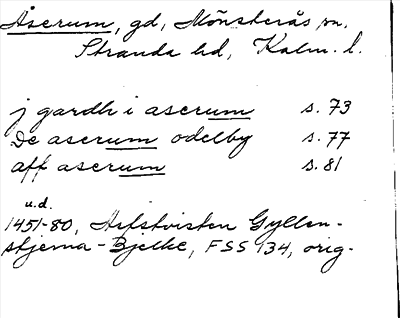 Åserum, gd, Mönsterås sn,
Stranda hd, Kalm. l.
j gardh i aserum s. 73
De aserum odelby s. 77
aff aserum s. 81
u.d.
1451-80, Arfstvisten Gyllen-
stjerna-Bjelke, FSS 134, orig.